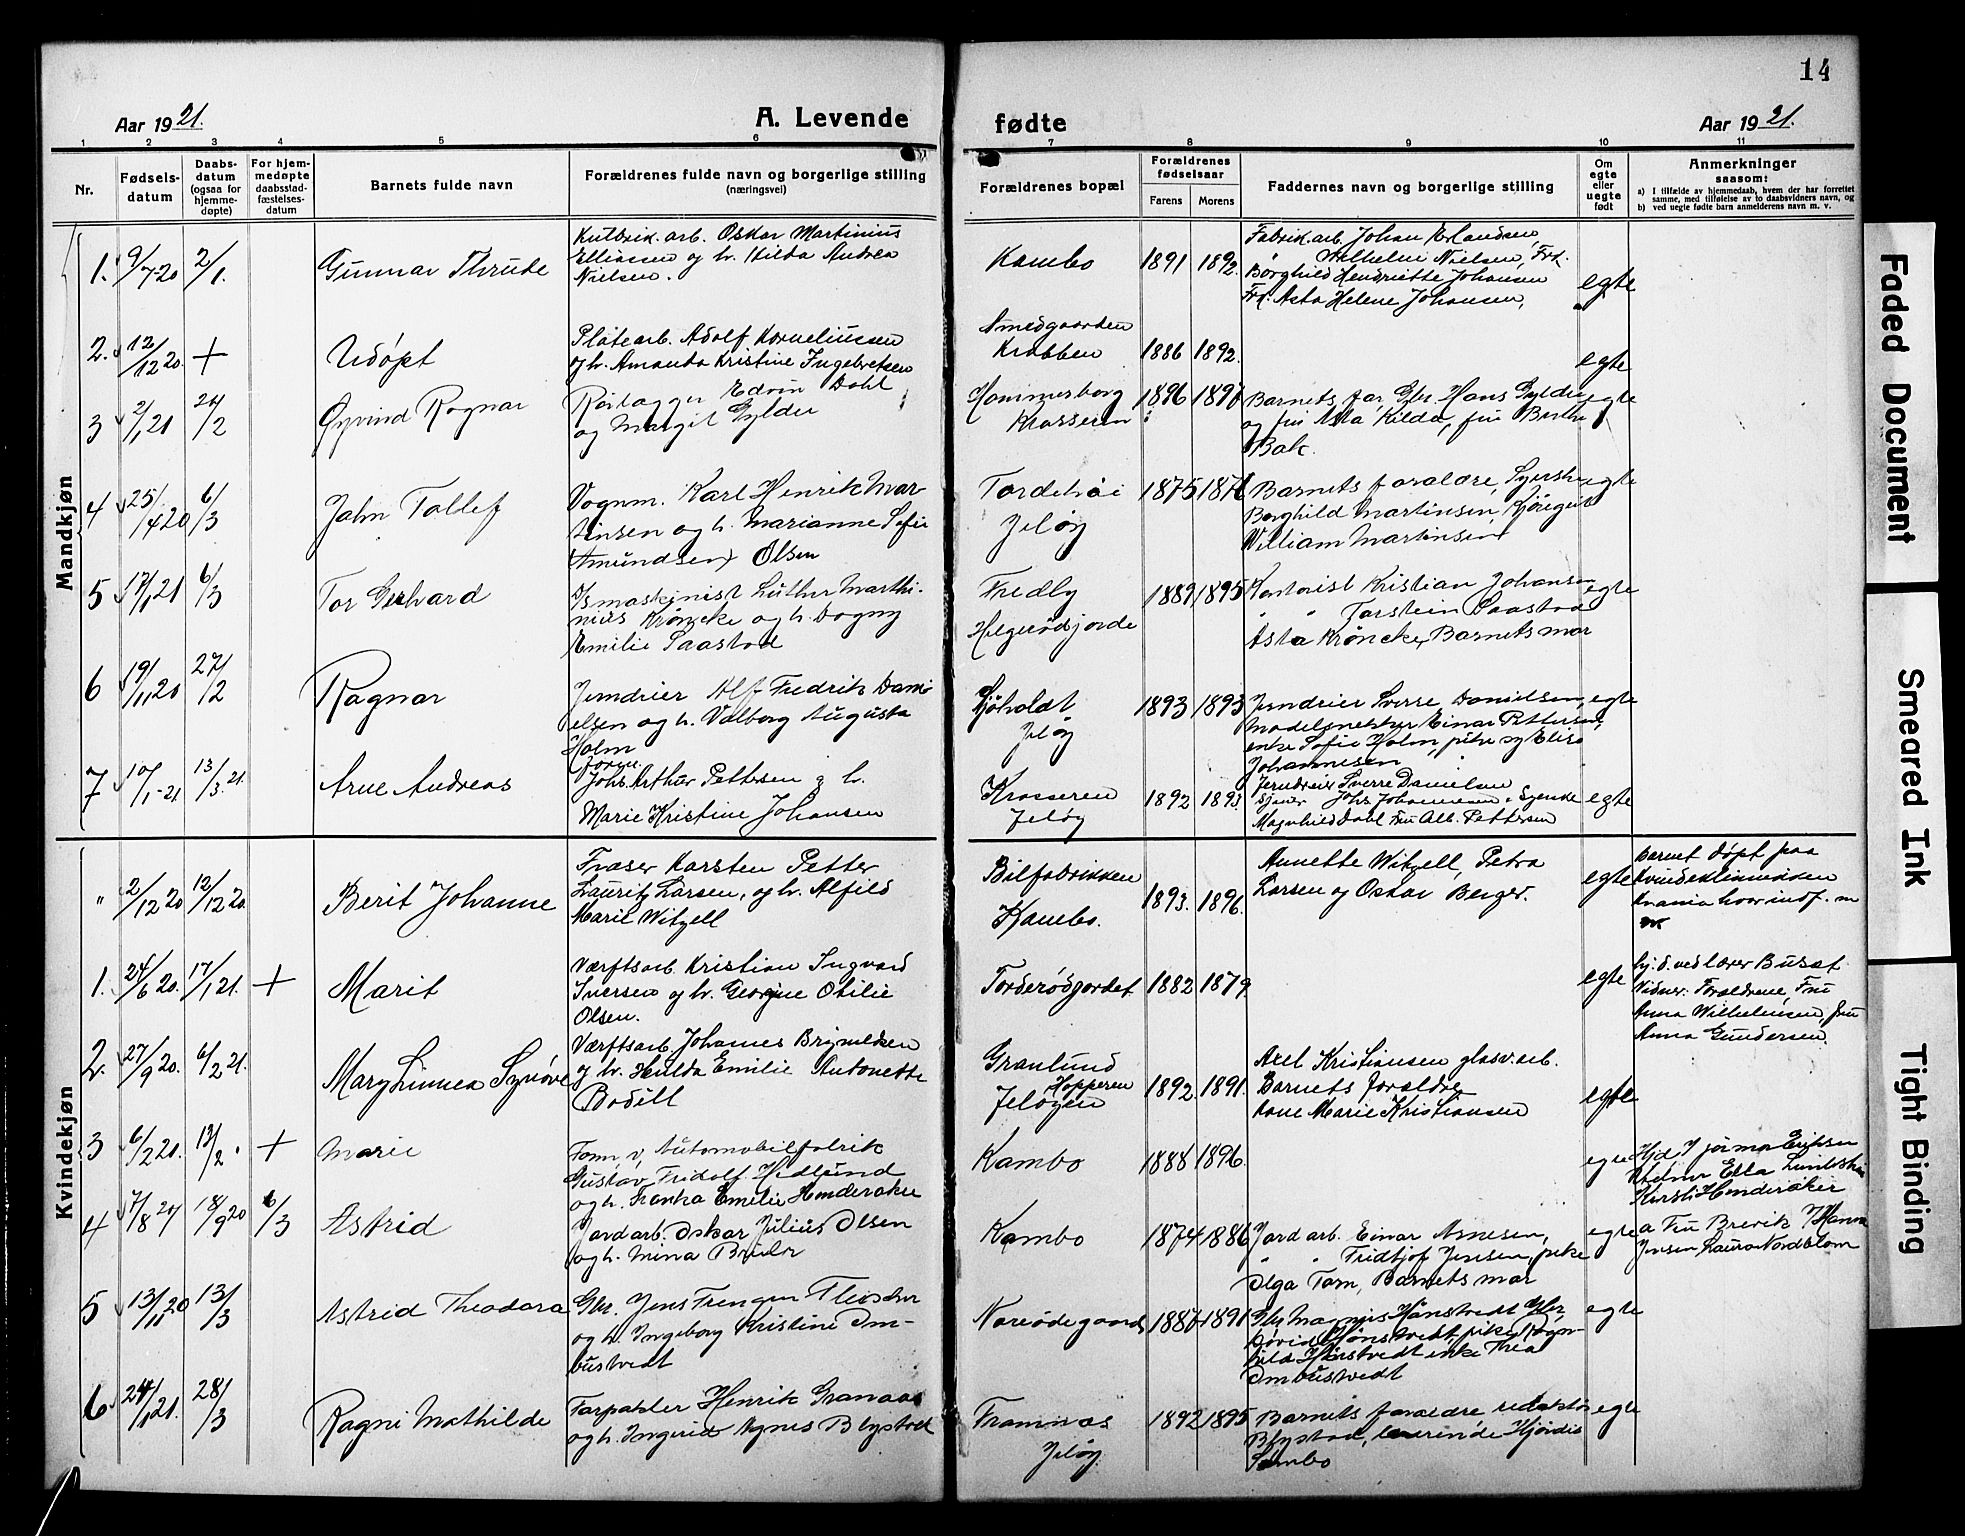 14
Aar 1921.
A. Levende
fødte
Aar 1921.
1 2 3 4 5 6 7 8 9 10 11
Nr.
Fødsels-
datum
Daabs-
datum
(ogsaa for
hjemme-
døpte)
For hjem-
medøpte
daabsstad-
fæstelses-
datum
Barnets fulde navn
Forældrenes fulde navn og borgerlige stilling
(næringsvei)
Forældrenes bopæl
Forældrenes
fødselsaar
Farens
Morens
Faddernes navn og borgerlige stilling
Om
egte
eller
uegte
født
Anmerkninger
saasom:
a) I tilfælde av hjemmedaab, hvem der har forrettet
samme, med tilføielse av to daabsvidners navn, og
b) ved uegte fødte barn anmelderens navn m. v.
Mandkjøn
1. 9/7-20 2/1. Gunnar Thrude
arb. Oskar Martinius
Elliassen og h. Hilda Andrea
Nielsen.
Kambo 1891 1892.
Fabrik.arb. Johan Erlandsen,
" Wilhelm Nielsen, Frk.
Borghild Hendriette Johansen
Frk. Asta Helene Johansen,
egte
2. 12/12 20. + Udøpt
Platearb. Adolf Korneliussen
og h. Amanda Kristine Ingebretsen
Smedgaarden
Krabben
1886 1892.
egte
3 2/1 21 24/2 Øyvind Ragnar
Rørlægger Edvin Dahl
og Margit Gylder
Hammerborg
Krosseren
1896
Barnets far, Gbr. Hans Gylder
og fru Asta Kilde, fru Berthe
Bak.
egte
4 25/4 20 6/3 John Tollef
Vognm. Karl Henrik Mar-
tinsen og h. Marianne Sofie
Amundsen Olsen
Jeløy
1875
Barnets forældre,
Borghild Martinsen,
William Martinsen
egte
5 17/1 21 6/3 Tor Gerhard
maskinist Luther Marthi-
nius Krøncke og h. Dagny
Emilie Saastad
Fredly
Helgerødjorde
1889 1895
Kontorist Kristian Johansen
" " Torstein Saastad
Asta Krøncke, Barnets mor
egte
6 19/11 20 27/2 Ragnar
Jerndreier Alf Fredrik Dani-
elsen og h. Valborg Augusta
Holm
Sjøholdt
Jeløy
1893 1893
Jerndreier Sverre Danielsen,
Modelsnekker Einar Pettersen,
enke Sofie Holm, pike Elise
Johannesen
egte
7 10/1-21 13/3.21. Arne Andreas
Johs. Arthur Pettersen g h.
Marie Kristine Johansen
Krosseren
Jeløy
1892 1893.
Jerndreier Sverre Danielsen
Johs. Johannesen.
Magnhild Dahl Fru Alb. Pettersen
egte
Kvindekjøn
" 2/12 20 12/12 20. Berit Johanne
Fraser Karsten Petter
Lauritz Larsen, og h. Alfild
Maril Witzell
Bilfabrikken
Kambo.
1893. 1896.
Annette Witzell, Petra
Larsen og Oskar Berger.
egte
Barnet døpt paa
kvindeklinikken
Krania hvor indf. m
1. 24/6 20. 17/1 21. + Marit
Værftsarb. Kristian Ingvard
Iversen og h. Georgine Otilie
Olsen.
Torderødjordet 1882 1879
egte
hj.d. ved lærer Busæt.
Vidner: Forældrene, Fru
Anna Wilhelmsen, fru
Anna Gundersen.
2. 27/9 20. 6/2 21. Mary Linnea Synøve
Værftsarb. Johannes Brynildsen
og h. Hulda Emilie Antonette
Bodill
Granlund
Hopperen
Jeløyen
1892. 1891.
Axel Kristiansen glasv.arb.
Barnets forældre
Marie Kristiansen
egte
3 6/2 21. 13/2. + Marie
Form. v. Automobilfabrik
Gustav Fridolf Hedlund
og h. Emelie Henderaker
Kambo 1888 1896.
egte
Hjd. Jormor Eriksen
Ella
Kirsti Henderaker
4 7/8 20 18/9 20 6/3 Astrid
Jordarb. Oskar Julius Olsen
og h. Mina
Kambo 1874 1886
Jordarb. Einar Arnesen,
" " Fridtjof Jensen, pike
Olga Tom, Barnets mor
egte
a Fru Brevik Hanna
Jensen, Laura Nordblom
5 13/11 20 13/3 Astrid Theodora
Gbr. Jens Flescher
og h. Ingeborg Kristine Om-
bustvedt
1891
Gbr. Magnus Hønstvedt Gbr.
Hønstvedt, pike Ragn-
hild Hønstvedt enke Thea
Ombustvedt
egte
6. 24/1 21. 28/3 Ragni Mathilde
Forpakter Henrik Granaas
og h. Ingerid Agnes Blystad
Framnæs
Jeløy.
1892 1895
Barnets forældre redaktør
Blystad, lærerinde Hjørdis
Sambo
egte
Faded Document
Smeared Ink
Tight Binding